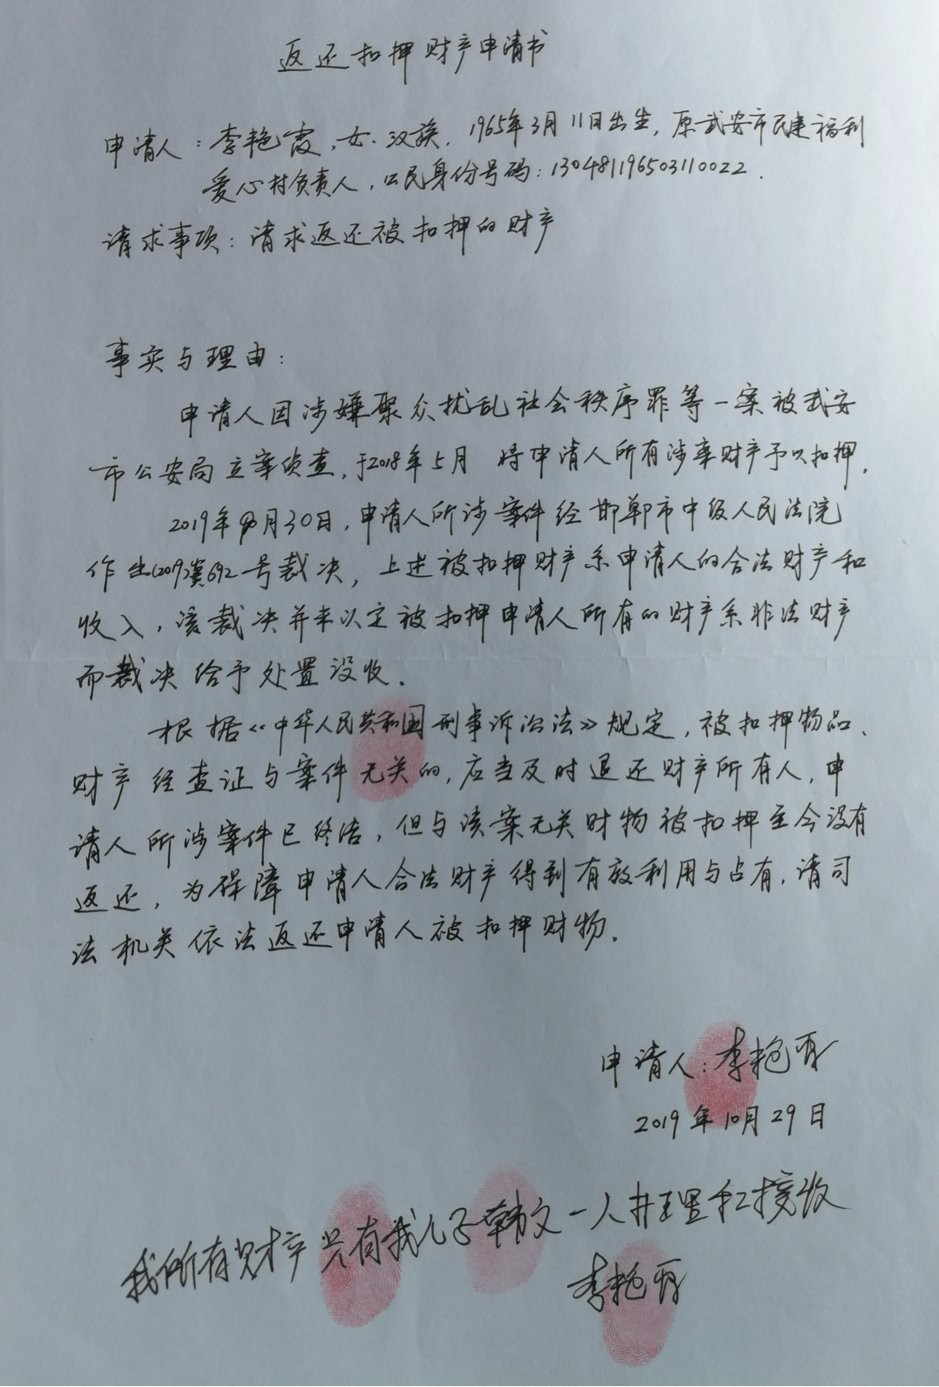 返还扣押财产申请书
申请人：李艳霞，女，汉族，1965年3月11日出生，原武安市民建福利
爱心村负责人，公民身份号码：130481196503110022．
请求事项：请求返还被扣押的财产
事实与理由：
申请人因涉嫌聚众扰乱社会秩序罪等一案被武安
市公安局立案侦查，于2018年5月 将申请人所有涉案财产予以扣押．
2019年 月30日，申请人所涉案件经邯郸市中级人民法院
作出 692号裁决，上述被扣押财产系申请人的合法财产和
收入，该裁决并未认定被扣押申请人所有的财产系非法财产
而裁决给予处置没收．
根据《中华人民共和国刑事诉讼法》规定，被扣押物品、
财产经查证与案件无关的，应当及时退还财产所有人，申
请人所涉案件已终结，但与该案无关财物被扣押至今没有
返还，为保障申请人合法财产得到有效利用与占有，请司
法机关依法返还申请人被扣押财物．
申请人：李艳霞
2019年10月29日
我所有财产只有我儿子韩文一人 理和接收
李艳霞